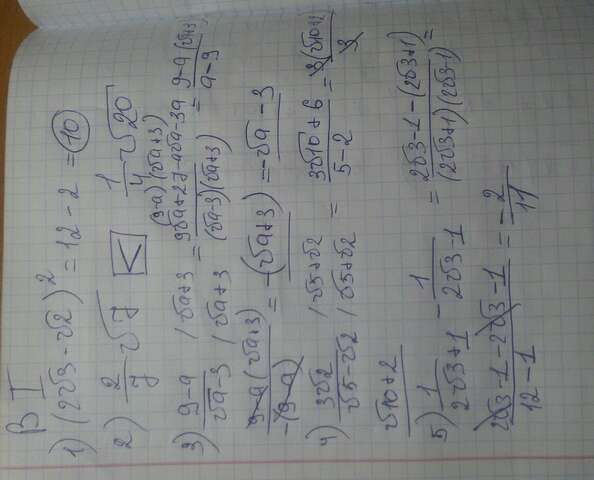 В I
1) (2√3 - √2)² = 12 - 2 = 10
2) 2/7 √7 < 1/4 √20
3) 9-a / √a-3 /√a+3 / √a+3 = (9-a)(√a+3) 9√a+27-a√a-3a / (√a-3)(√a+3) = 9-a(√a+3) / a-9
9-a(√a+3) / -(9-a) = -(√a+3) = -√a - 3
4) 3√2 / √5-√2 /√5+√2 / √5+√2 = 3√10+6 / 5-2 = 3(√10+2) / 3
√10+2
5) 1 / 2√3+1 - 1 / 2√3-1 = 2√3-1-(2√3+1) / (2√3+1)(2√3-1) =
2√3-1-2√3-1 / 12-1 = -2/11